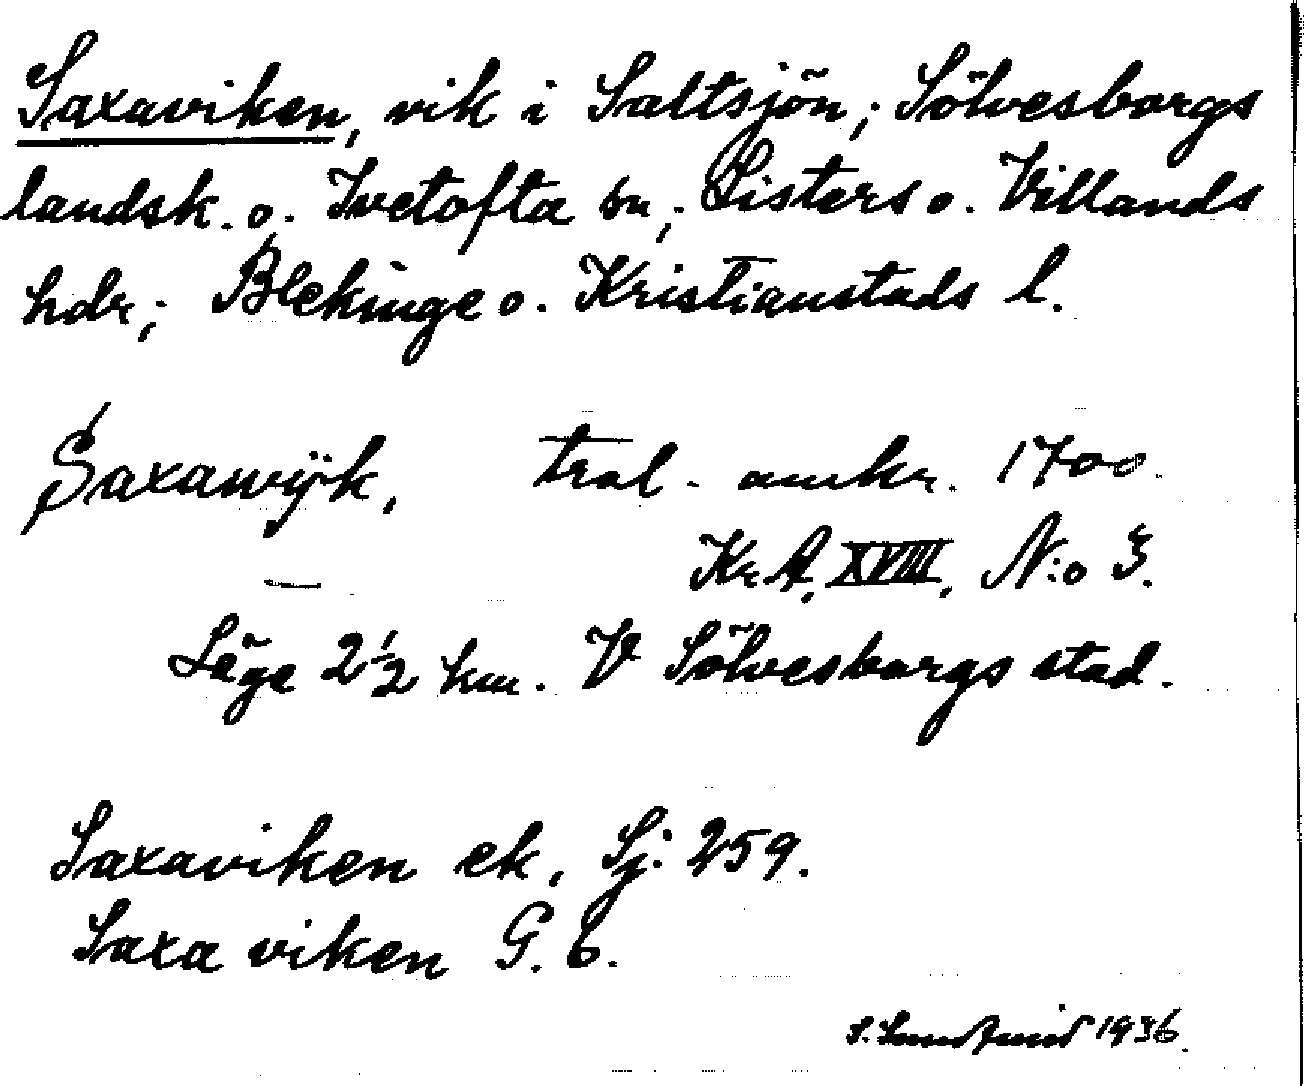 Saxaviken, vik i Saltsjön; Sölvesborgs
landsk. o. Ivetofta sn; Listers o. Villands
hdr; Blekinge o. Kristianstads l.
Saxawÿk, trol. omkr. 1700.
Kr.A. XVIII, N:o 3.
Läge 2½ km. V Sölvesborgs stad.
Saxaviken ek, Sj: 259.
Saxa viken G. 6.
S. 1936.